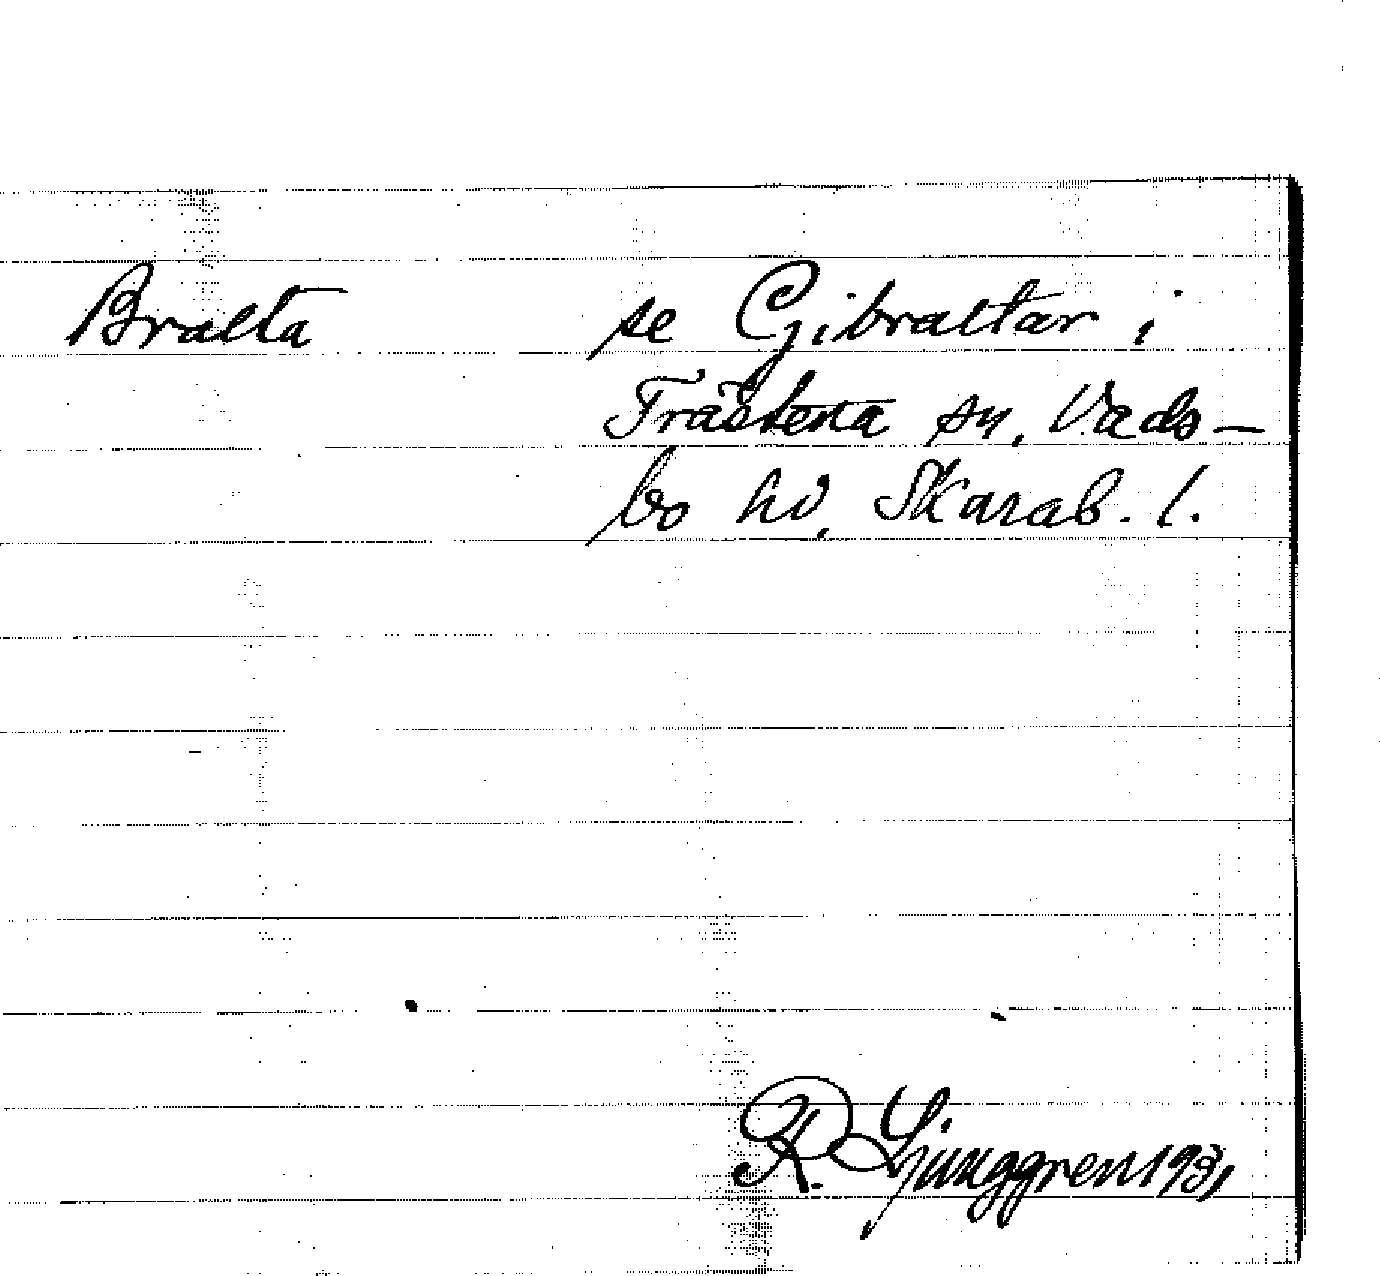 Bralta se Gibraltar i
Trästena sn, Vads-
bo hd, Skarab. l.
R. Ljunggren 1931